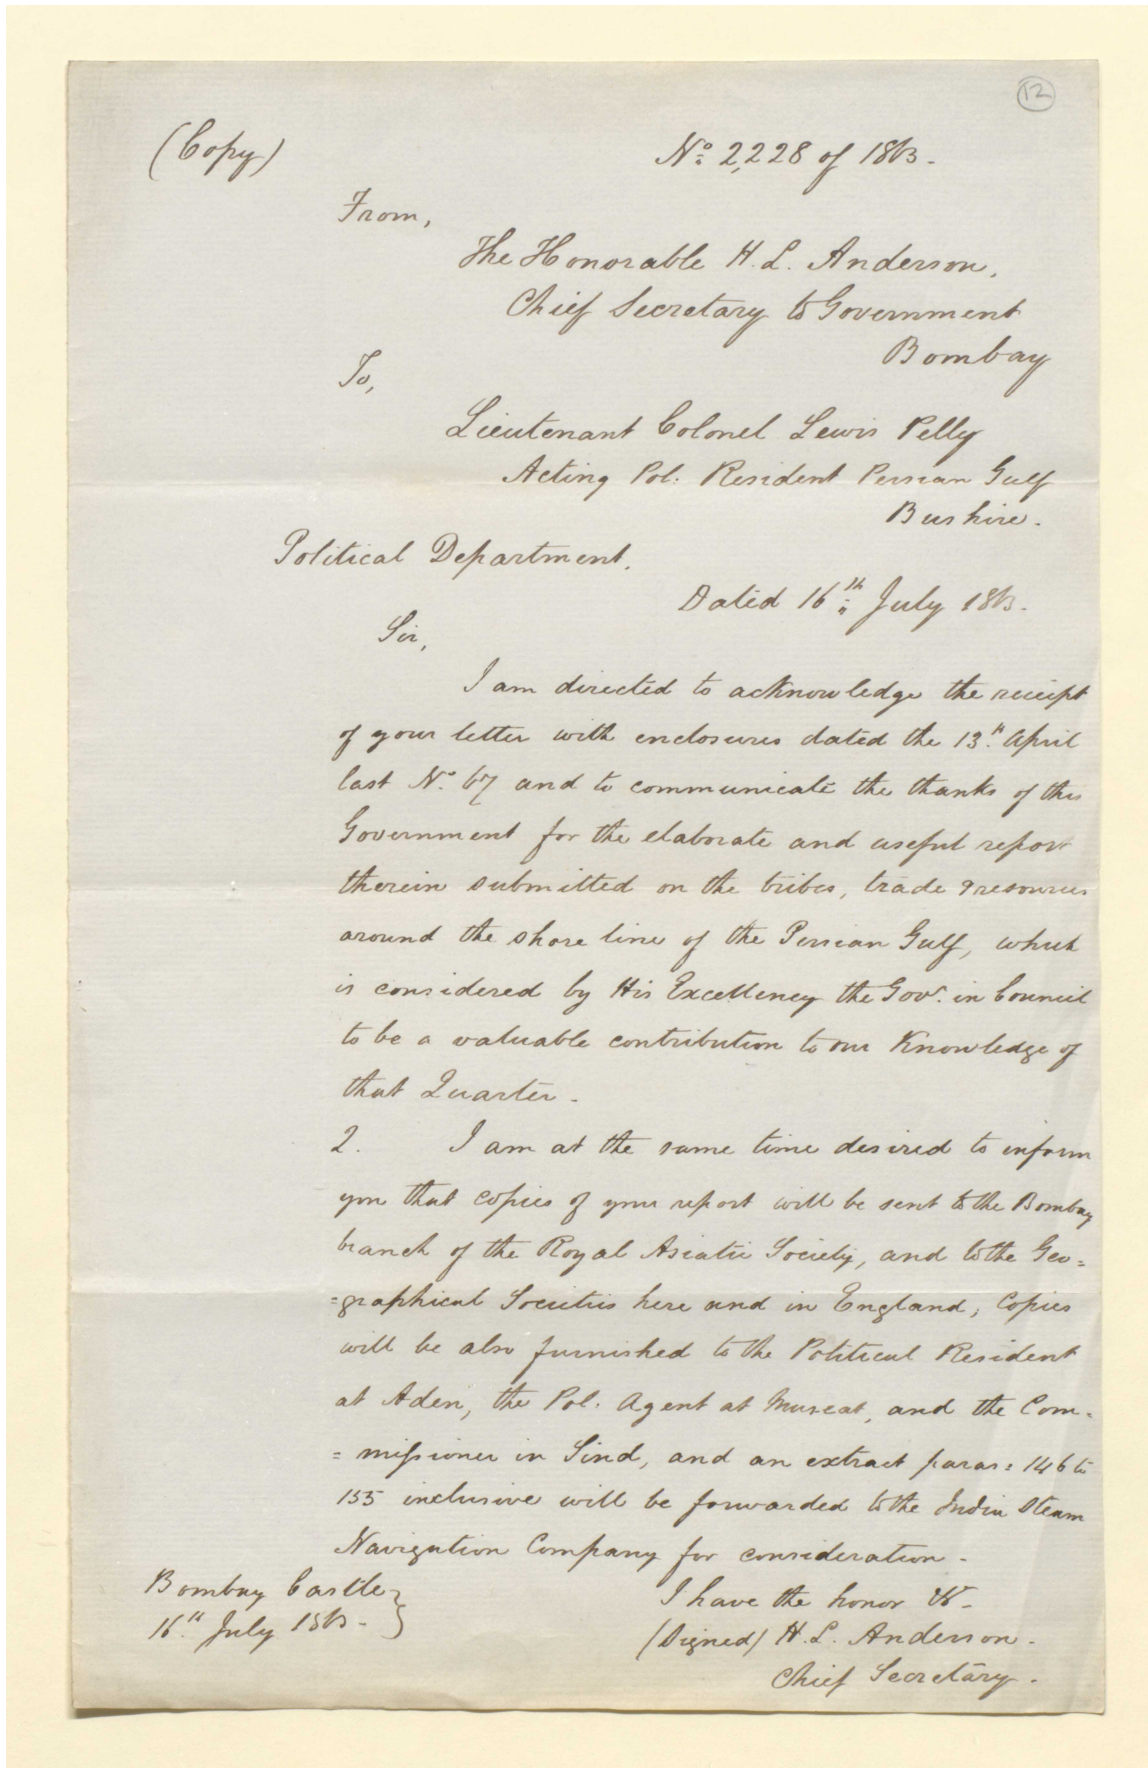 12
(Copy)
No. 2,228 of 1863.
From,
The Honorable H. L. Anderson,
Chief Secretary to Government
Bombay
To,
Lieutenant Colonel Lewis Pelly
Acting Pol. Resident Persian Gulf
Bushire.
Political Department.
Dated 16th July 1863.
Sir,
I am directed to acknowledge the receipt
of your letter with enclosures dated the 13th April
last No. 67 and to communicate the thanks of this
Government for the elaborate and useful report
therein submitted on the tribes, trade & resources
around the shore line of the Persian Gulf, which
is considered by His Excellency the Govr. in Council
to be a valuable contribution to our Knowledge of
that Quarter.
2. I am at the same time desired to inform
you that copies of your report will be sent to the Bombay
branch of the Royal Asiatic Society, and to the Geo=
=graphical Societies here and in England, Copies
will be also furnished to the Political Resident
at Aden, the Pol. Agent at Muscat, and the Com=
=missioner in Sind, and an extract paras: 146 to
155 inclusive will be forwarded to the India Steam
Navigation Company for consideration.
I have the honor &c.
Bombay Castle }
(Signed) H. L. Anderson.
16th July 1863. }
Chief Secretary.